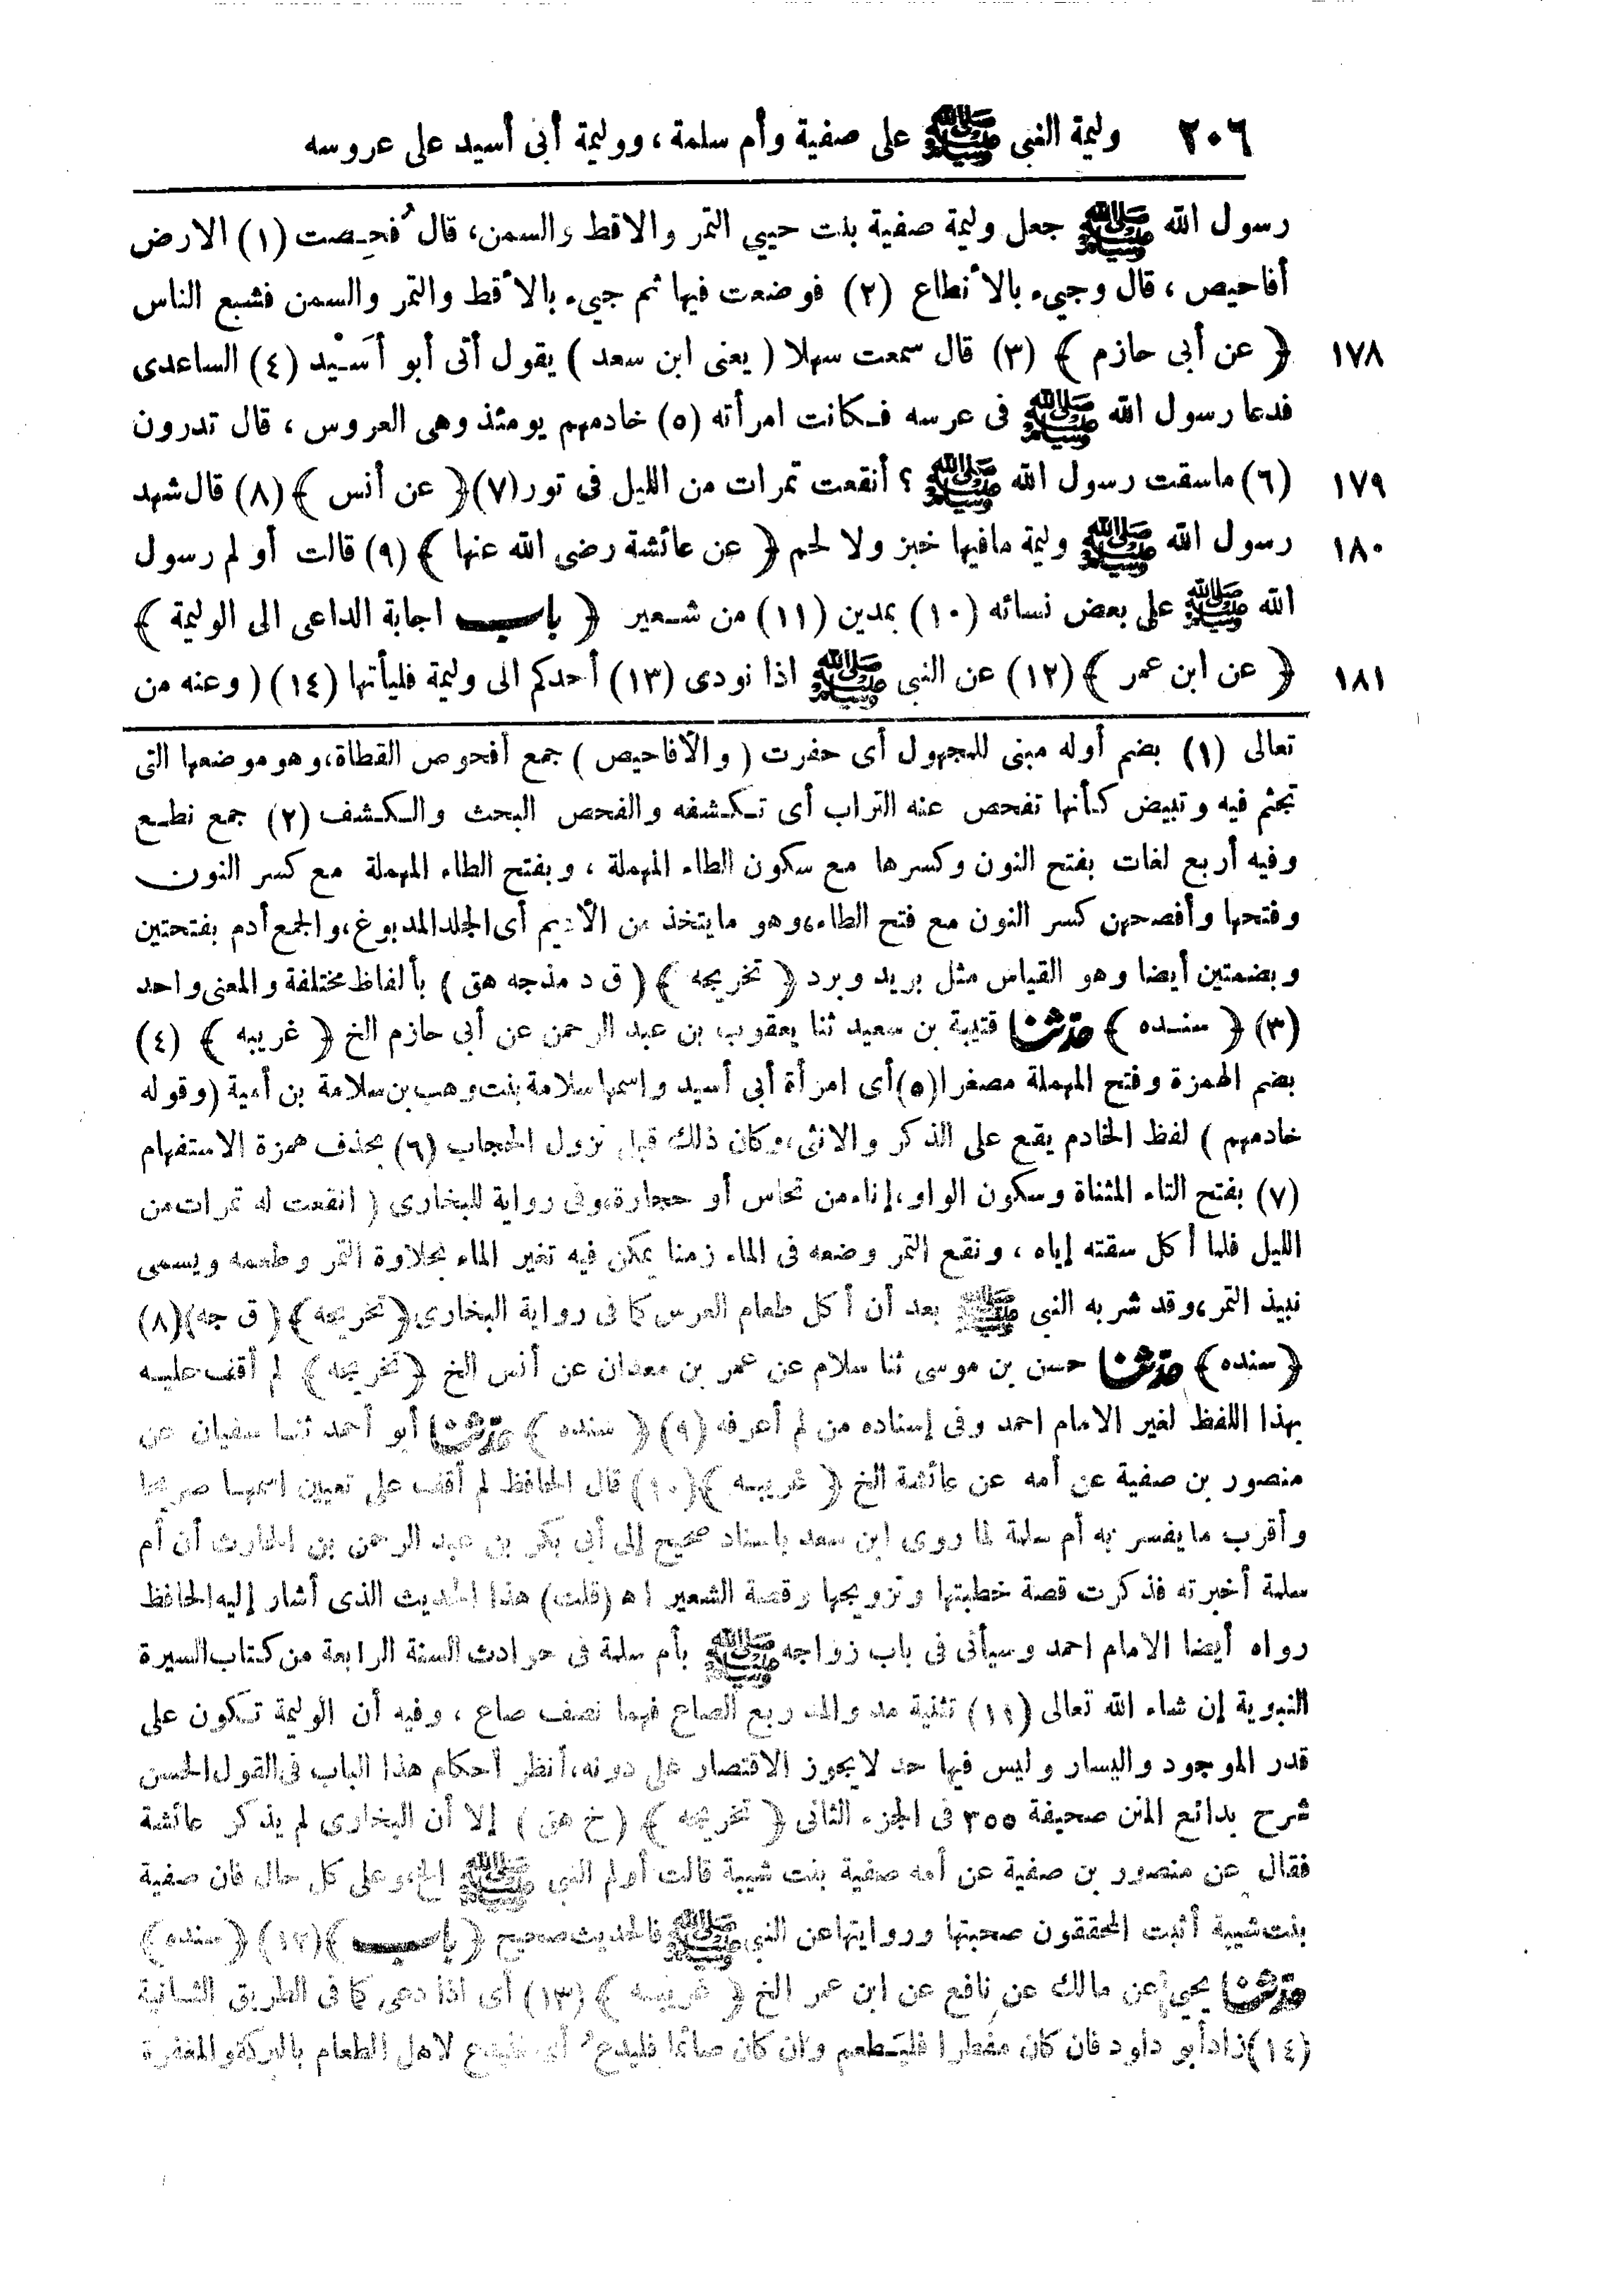 ٢٠٦ وليمة النبى ﷺ على صفية وأم سلمة ، ووليمة أبى أسيد على عروسه
رسول الله ﷺ جعل وليمة صفية بنت حيي التمر والاقط والسمن، قال فُحِصت (١) الارض
أفاحيص ، قال وجىء بالأنطاع (٢) فوضعت فيها ثم جىء بالأقط والتمر والسمن فشبع الناس
١٧٨ ﴿ عن أبى حازم ﴾ (٣) قال سمعت سهلا ( يعنى ابن سعد ) يقول أتى أبو أسَيْد (٤) الساعدى
فدعا رسول الله ﷺ فى عرسه فكانت امرأته (٥) خادمهم يومئذ وهى العروس ، قال تدرون
١٧٩ (٦) ماسقت رسول الله ﷺ ؟ أنقعت تمرات من الليل فى تور (٧) ﴿ عن أنس ﴾ (٨) قال شهد
١٨٠ رسول الله ﷺ وليمة مافيها خبز ولا لحم ﴿ عن عائشة رضى الله عنها ﴾ (٩) قالت أولم رسول
الله ﷺ على بعض نسائه (١٠) بمدين (١١) من شعير ﴿ باب اجابة الداعى الى الوليمة ﴾
١٨١ ﴿ عن ابن عمر ﴾ (١٢) عن النبى ﷺ اذا نودى (١٣) أحدكم الى وليمة فليأتها (١٤) ( وعنه من
تعالى (١) بضم أوله مبنى للمجهول أى حفرت ( والأفاحيص ) جمع أفحوص القطاة، وهو موضعها التى
تجثم فيه وتبيض كأنها تفحص عنه التراب أى تكشفه والفحص البحث والكشف (٢) جمع نطع
وفيه أربع لغات بفتح النون وكسرها مع سكون الطاء المهملة ، وبفتح الطاء المهملة مع كسر النون
وفتحها وأفصحهن كسر النون مع فتح الطاء، وهو مايتخذ من الأديم أى الجلد المدبوغ، والجمع أدم بفتحتين
وبضمتين أيضا وهو القياس مثل بريد وبرد ﴿ تخريجه ﴾ ( ق د مذ جه هق ) بألفاظ مختلفة والمعنى واحد
(٣) ﴿ سنده ﴾ حدثنا قتيبة بن سعيد ثنا يعقوب بن عبد الرحمن عن أبى حازم الخ ﴿ غريبه ﴾ (٤)
بضم الهمزة وفتح المهملة مصغرا (٥) أى امرأة أبى أسيد واسمها سلامة بنت وهب بن سلامة بن أمية (وقوله
خادمهم ) لفظ الخادم يقع على الذكر والانثى، وكان ذلك قبل نزول الحجاب (٦) بحذف همزة الاستفهام
(٧) بفتح التاء المثناة وسكون الواو، إناء من نحاس أو حجارة، وفى رواية للبخارى ( انقعت له تمرات من
الليل فلما أكل سقته إياه ، ونقع التمر وضعه فى الماء زمنا يمكن فيه تغير الماء بحلاوة التمر وطعمه ويسمى
نبيذ التمر، وقد شربه النبى ﷺ بعد أن أكل طعام العرس كما فى رواية البخارى ﴿ تخريجه ﴾ ( ق جه) (٨)
﴿ سنده ﴾ حدثنا حسن بن موسى ثنا سلام عن عمر بن معدان عن أنس الخ ﴿ تخريجه ﴾ لم أقف عليه
بهذا اللفظ لغير الامام احمد وفى إسناده من لم أعرفه (٩) ﴿ سنده ﴾ حدثنا أبو أحمد ثنا سفيان عن
منصور بن صفية عن أمه عن عائشة الخ ﴿ غريبه ﴾ (١٠) قال الحافظ لم أقف على تعيين اسمها صريحا
وأقرب مايفسر به أم سلمة لما روى ابن سعد باسناد صحيح إلى أبى بكر بن عبد الرحمن بن الحارث أن أم
سلمة أخبرته فذكرت قصة خطبتها وتزويجها وقصة الشعير اه (قلت) هذا الحديث الذى أشار إليه الحافظ
رواه أيضا الامام احمد وسيأتى فى باب زواجه ﷺ بأم سلمة فى حوادث السنة الرابعة من كتاب السيرة
النبوية إن شاء الله تعالى (١١) تثنية مد والمد ربع الصاع فهما نصف صاع ، وفيه أن الوليمة تكون على
قدر الموجود واليسار وليس فيها حد لايجوز الاقتصار على دونه، أنظر أحكام هذا الباب فى القول الحسن
شرح بدائع المنن صحيفة ٣٥٥ فى الجزء الثانى ﴿ تخريجه ﴾ ( خ هق ) إلا أن البخارى لم يذكر عائشة
فقال عن منصور بن صفية عن أمه صفية بنت شيبة قالت أولم النبى ﷺ الخ، وعلى كل حال فان صفية
بنت شيبة أثبت المحققون صحبتها وروايتها عن النبى ﷺ فالحديث صحيح ﴿ باب ﴾ (١٢) ﴿ سنده ﴾
حدثنا يحيى عن مالك عن نافع عن ابن عمر الخ ﴿ غريبه ﴾ (١٣) أى اذا دعى كما فى الطريق الثانية
(١٤) زاد أبو داود فان كان مفطرا فليَطعم وان كان صائما فليدع أى فليدع لاهل الطعام بالبركة والمغفرة